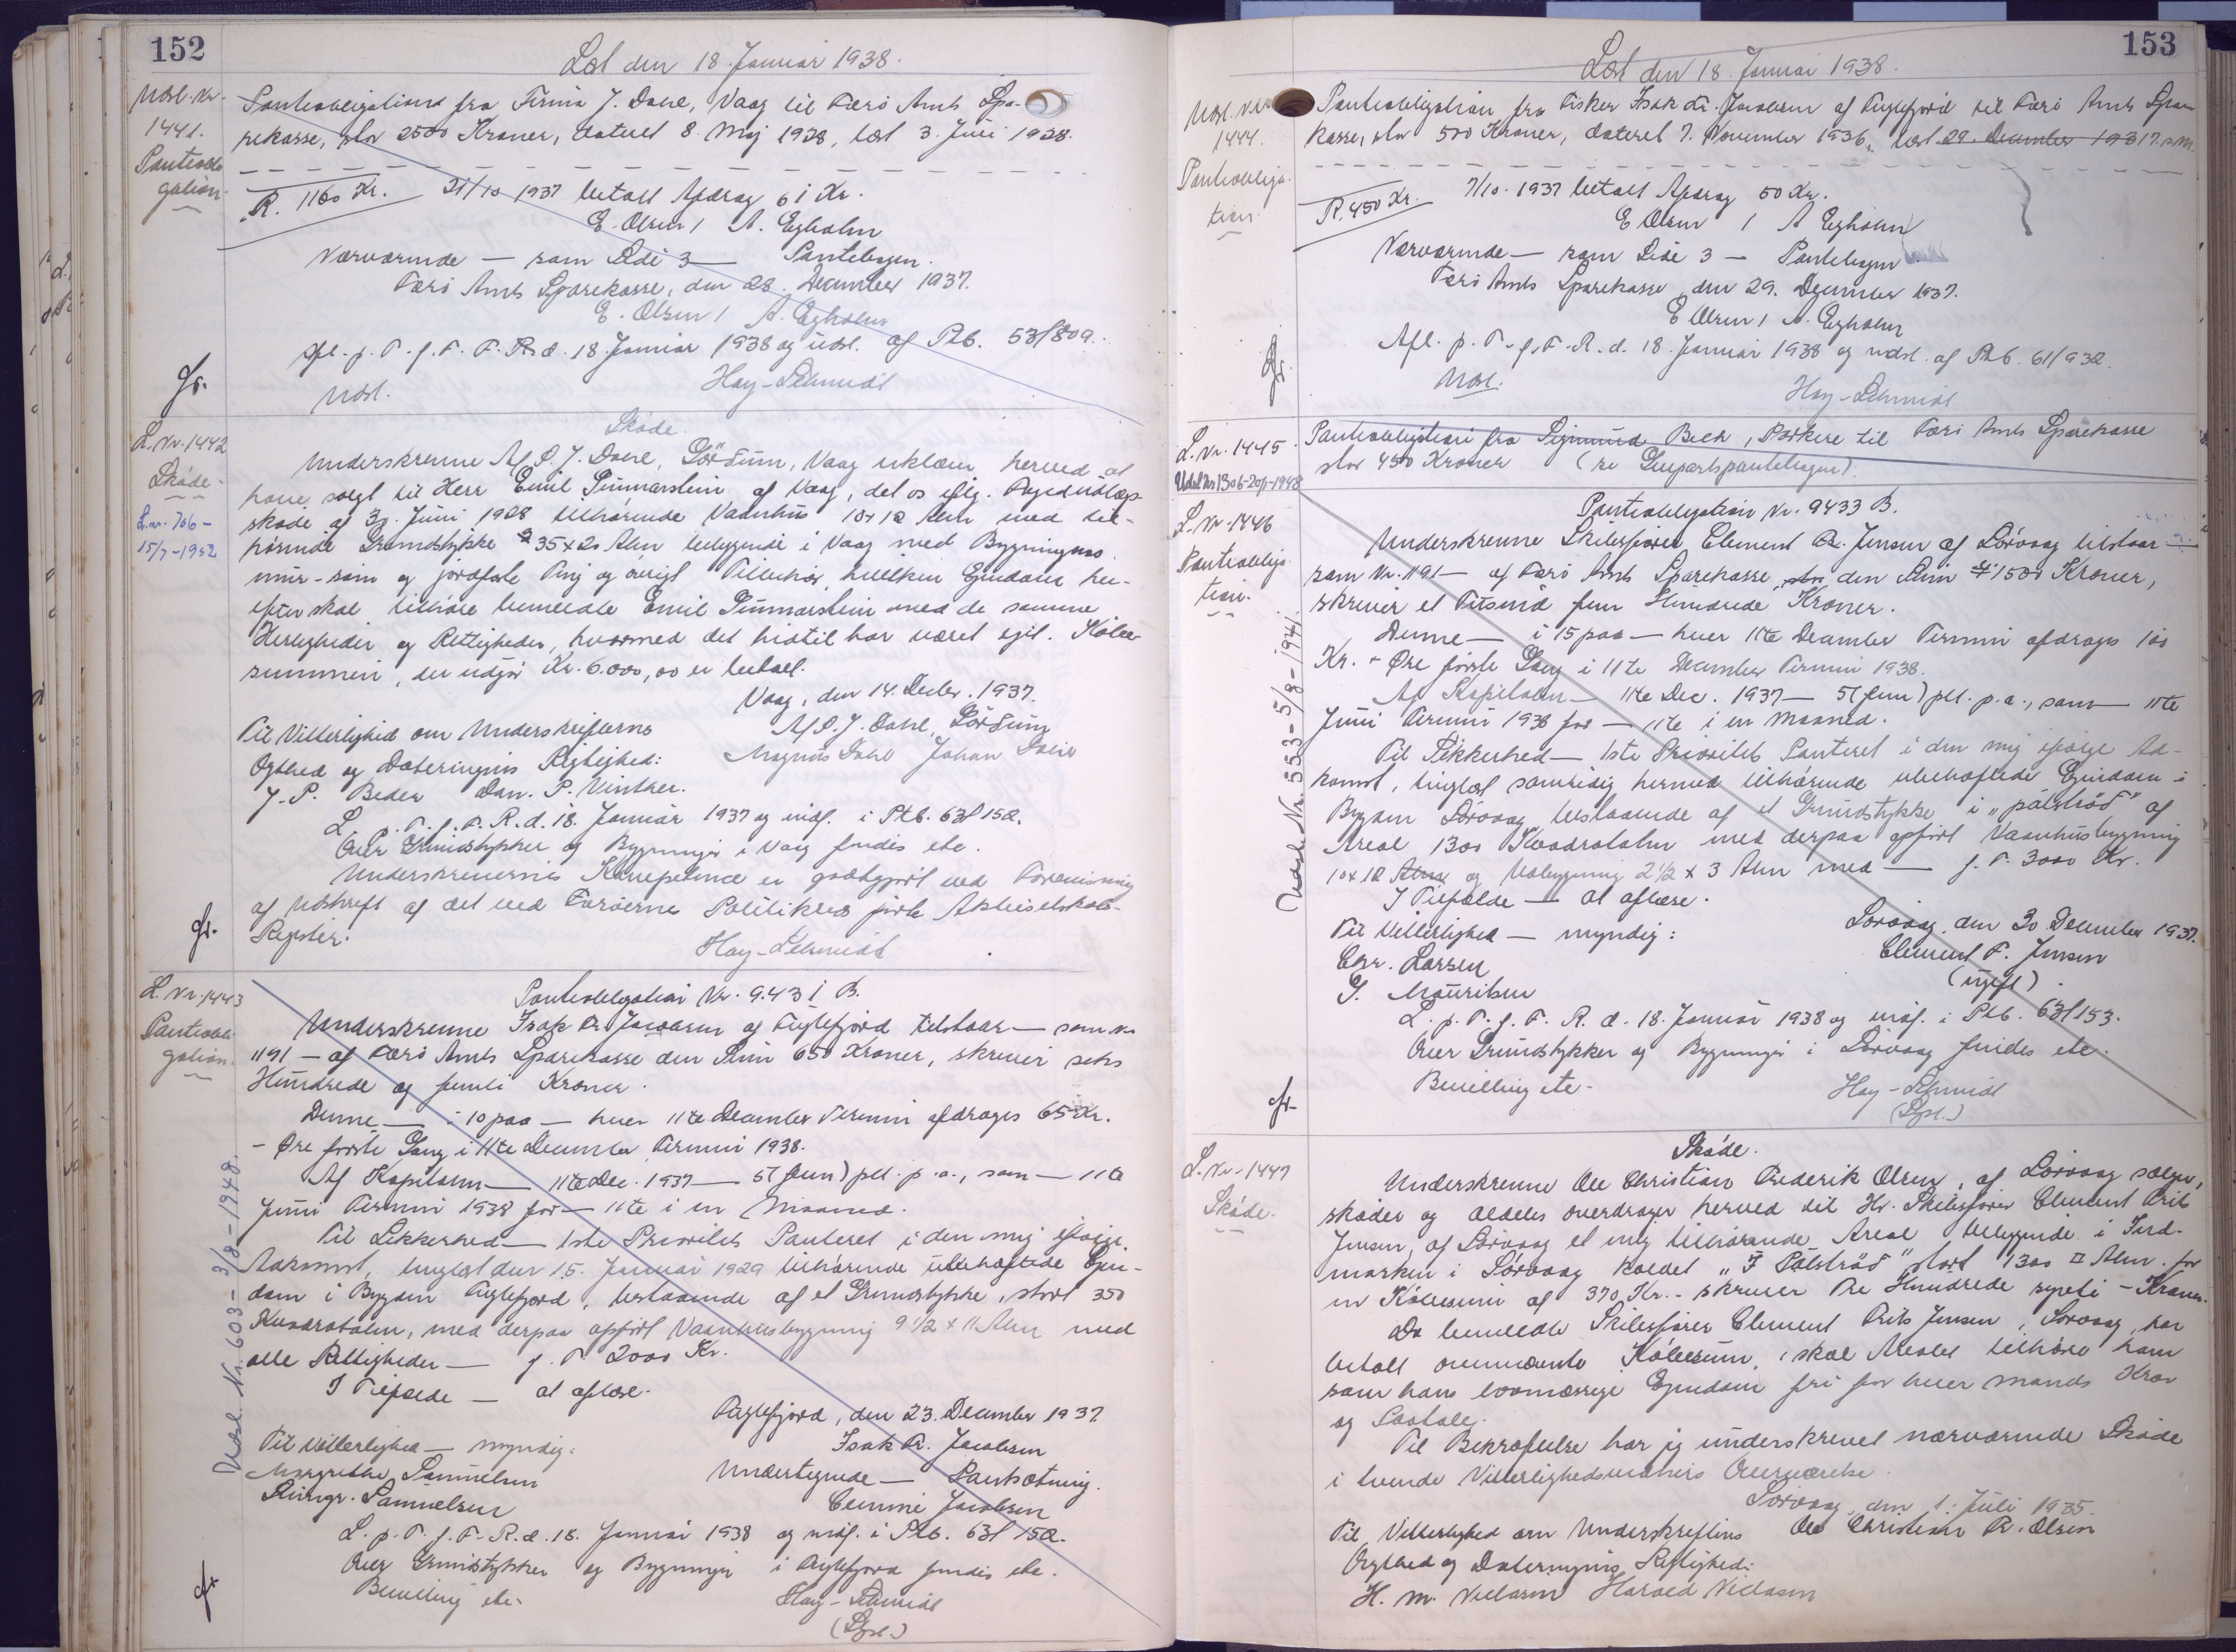 152
Læst den 18. Januar 1938.
Udsl. Nr.
1441.
Pantobli-
gation.
Pantobligation fra Firma J. Dahl, Vaag til Færø Amts Spa-
rekasse, stor 2500 Kroner, dateret 8. Maj 1928, læst 3. Juni 1928.
R. 1160 Kr. 21/10 1937 betalt Afdrag 61 Kr.
E. Olsen / A. Egholm
Nærværende — som Side 3 — Pantebogen.
Færø Amts Sparekasse, den 28. December 1937.
E. Olsen / A. Egholm
Afl. p. T. f. F. R. d. 18. Januar 1938 og udsl. af Ptb. 53/809.
Udsl. Hay-Schmidt
Gr.
L. Nr. 1442
Skøde.
L. nr. 706 -
15/7-1952
Skøde
Underskrevne A/S J. Dahl, Vaag erklærer herved at
have solgt til Herr Emil Gunnarstein af Vaag, det os iflg. Fogedudlægs-
skøde af 30. Juni 1928 tilhørende Vaanhus 10x12 Alen med til-
hørende Grundstykke 35x20 Alen beliggende i Vaag med Bygningens
mur- søm og jordfaste Ting og øvrigt Tilbehør, hvilken Ejendom her-
efter skal tilhøre bemeldte Emil Gunnarstein med de samme
Herligheder og Rettigheder, hvormed det hidtil har været ejet. Købe-
summen, der udgør Kr. 6.000,00 er betalt.
Vaag, den 14. Decbr. 1937.
Til Vitterlighed om Underskrifternes
Ægthed og Dateringens Rigtighed:
Magnus Dahl Johan Dahl
J. P. Beder Dan. P. Vinther.
L. p. T. f. F. R. d. 18. Januar 1937 og indf. i Ptb. 63/152.
Over Grundstykker og Bygninger i Vaag findes etc.
Underskrivernes Kompetence er godtgjort ved Forevisning
af Udskrift af det ved Færøernes Politikreds førte Aktieselskabs-
Register.
Hay-Schmidt
Gr.
L. Nr. 1443
Pantobli-
gation.
Udsl. Nr. 603-3/8-1948.
Pantobligation Nr. 9431 B.
Underskrevne Isak Fr. Jacobsen af Fuglefjord tilstaar — som Nr.
1191 — af Færø Amts Sparekasse den Sum 650 Kroner, skriver seks
Hundrede og femti Kroner.
Denne — i 10 paa — hver 11te December Termin afdrages 65 Kr.
- Øre første Gang i 11te December Termin 1938.
Af Kapitalen — 11te Dec. 1937 — 5 (fem) pCt. p. a., som — 11te
Juni Termin 1938 for — 11te i en Maaned.
Til Sikkerhed — 1ste Prioritets Panteret i den mig ifølge
Adkomst, tinglæst den 15. Januar 1929 tilhørende ubehæftede Ejen-
dom i Bygden Fuglefjord, bestaaende af et Grundstykke, stort 350
Kvadratalen, med derpaa opført Vaanhusbygning 9 1/2 x 11 Alen med
alle Rettigheder — f. T. 2000 Kr.
I Tilfælde — at aflæse.
Fuglefjord, den 23. December 1937.
Til Vitterlighed — myndig: Isak Fr. Jacobsen
Margrethe Samuelsen Undertegnede — Pantsætning.
Samuelsen Jacobsen
L. p. T. f. F. R. d. 18. Januar 1938 og indf. i Ptb. 63/152.
Over Grundstykker og Bygninger i Fuglefjord findes etc.
Bevilling etc. Hay-Schmidt
Gr.
153
Læst den 18. Januar 1938.
Udsl. Nr.
1444.
Pantobliga-
tion.
Pantobligation fra Fisker Isak Fr. Jacobsen af Fuglefjord til Færø Amts Spare
kasse, stor 500 Kroner, dateret 7. November 1936, læst 29. December 1937.
R. 450 Kr. 7/10. 1937 betalt Afdrag 50 Kr.
E. Olsen / A. Egholm
Nærværende — som Side 3 — Pantebogen.
Færø Amts Sparekasse, den 29. December 1937.
E. Olsen / A. Egholm
Afl. p. T. f. F. R. d. 18. Januar 1938 og udsl. af Ptb. 61/932.
Udsl. Hay-Schmidt
Gr.
L. Nr. 1445.
Udsl Nr 1306-20/1-1948
Pantobligation fra Sigmund Beck, Porkere til Færø Amts Sparekasse
stor 450 Kroner (se Genpartspantebogen).
L. Nr. 1446
Pantobliga-
tion.
Udsl. Nr. 553-5/8-1941.
Pantobligation Nr. 9433 B.
Underskrevne Skibsfører Clement Fr. Jensen af Sørvaag tilstaar —
som Nr. 1191 — af Færø Amts Sparekasse den Sum 1500 Kroner,
skriver et Tusind fem Hundrede Kroner.
Denne — i 15 paa — hver 11te December Termin afdrages 100
Kr. - Øre første Gang i 11te December Termin 1938.
Af Kapitalen — 11te Dec. 1937 — 5 (fem) pCt. p. a., som — 11te
Juni Termin 1938 for — 11te i en Maaned.
Til Sikkerhed — 1ste Prioritets Panteret i den mig ifølge Ad-
komst, tinglæst samtidig hermed tilhørende ubehæftede Ejendom i
Bygden Sørvaag bestaaende af et Grundstykke i „pálstrøð“ af
Areal 1300 Kvadratalen med derpaa opført Vaanhusbygning
10x12 Alen og Udbygning 2 1/2 x 3 Alen med — f. T. 3000 Kr.
I Tilfælde — at aflæse.
Sørvaag, den 30. December 1937.
Til Vitterlighed — myndig: Clement F. Jensen
Chr. Larsen (ugift).
Mouritsen
L. p. T. f. F. R. d. 18. Januar 1938 og indf. i Ptb. 63/153.
Over Grundstykker og Bygninger i Sørvaag findes etc.
Bevilling etc. Hay-Schmidt
Gr.
L. Nr. 1447
Skøde.
Skøde.
Underskrevne Ole Christian Frederik Olsen, af Sørvaag sælger,
skøder og aldeles overdrager herved til Hr. Skibsfører Clement Frits
Jensen, af Sørvaag et mig tilhørende Areal beliggende i Ind-
marken i Sørvaag kaldet „Í Pálstrøð“ stort 1300 □ Alen for
en Købesum af 370 Kr. - skriver tre Hundrede syvti - Kroner.
Da bemeldte Skibsfører Clement Frits Jensen, Sørvaag, har
betalt ovennævnte Købesum, skal Arealet tilhøre ham
som hans lovmæssige Ejendom fri for hver Mands Krav
og Paatale.
Til Bekræftelse har jeg underskrevet nærværende Skøde
i tvende Vitterlighedsvidners Overværelse.
Sørvaag, den 1. Juli 1935.
Til Vitterlighed om Underskriftens Ole Christian Fr. Olsen
Ægthed og Dateringens Rigtighed:
H. M. Niclasen Harald Niclasen